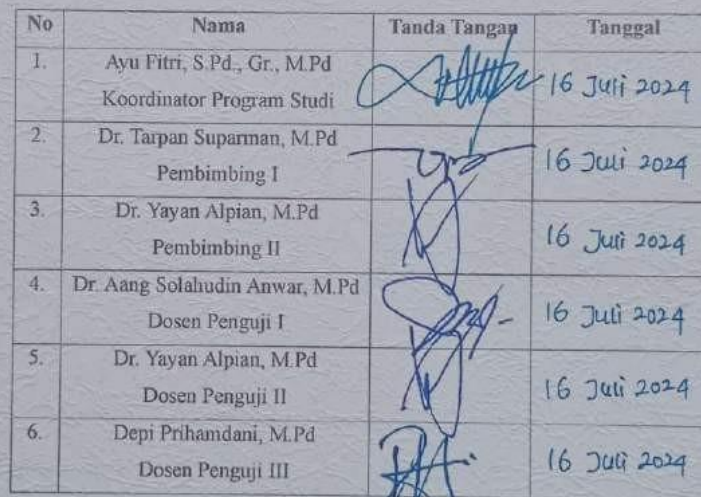 No Nama Tanda Tangan Tanggal
1. Ayu Fitri, S.Pd., Gr., M.Pd
Koordinator Program Studi
16 Juli 2024
2. Dr. Tarpan Suparman, M.Pd
Pembimbing I
16 Juli 2024
3. Dr. Yayan Alpian, M.Pd
Pembimbing II
16 Juli 2024
4. Dr. Aang Solahudin Anwar, M.Pd
Dosen Penguji I
16 Juli 2024
5. Dr. Yayan Alpian, M.Pd
Dosen Penguji II
16 Juli 2024
6. Depi Prihamdani, M.Pd
Dosen Penguji III
16 Juli 2024